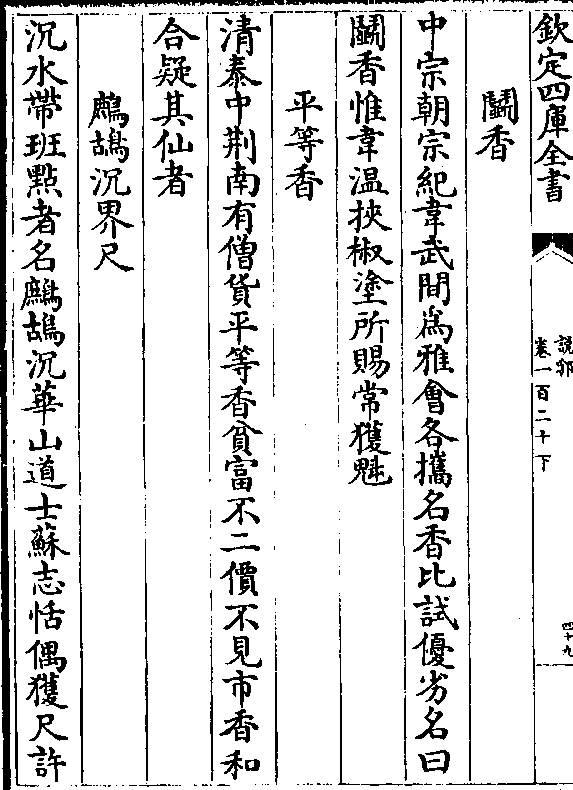 欽定四庫全書
說郛
卷一百二十下
四十九
鬬香
中宗朝宗紀韋武間為雅會各攜名香比試優劣名曰
鬬香惟韋温挾椒塗所賜常獲魁
平等香
清泰中荆南有僧貨平等香貧富不二價不見市香和
合疑其仙者
鷓鴣沉界尺
沉水帶班點者名鷓鴣沉華山道士蘇志恬偶獲尺許